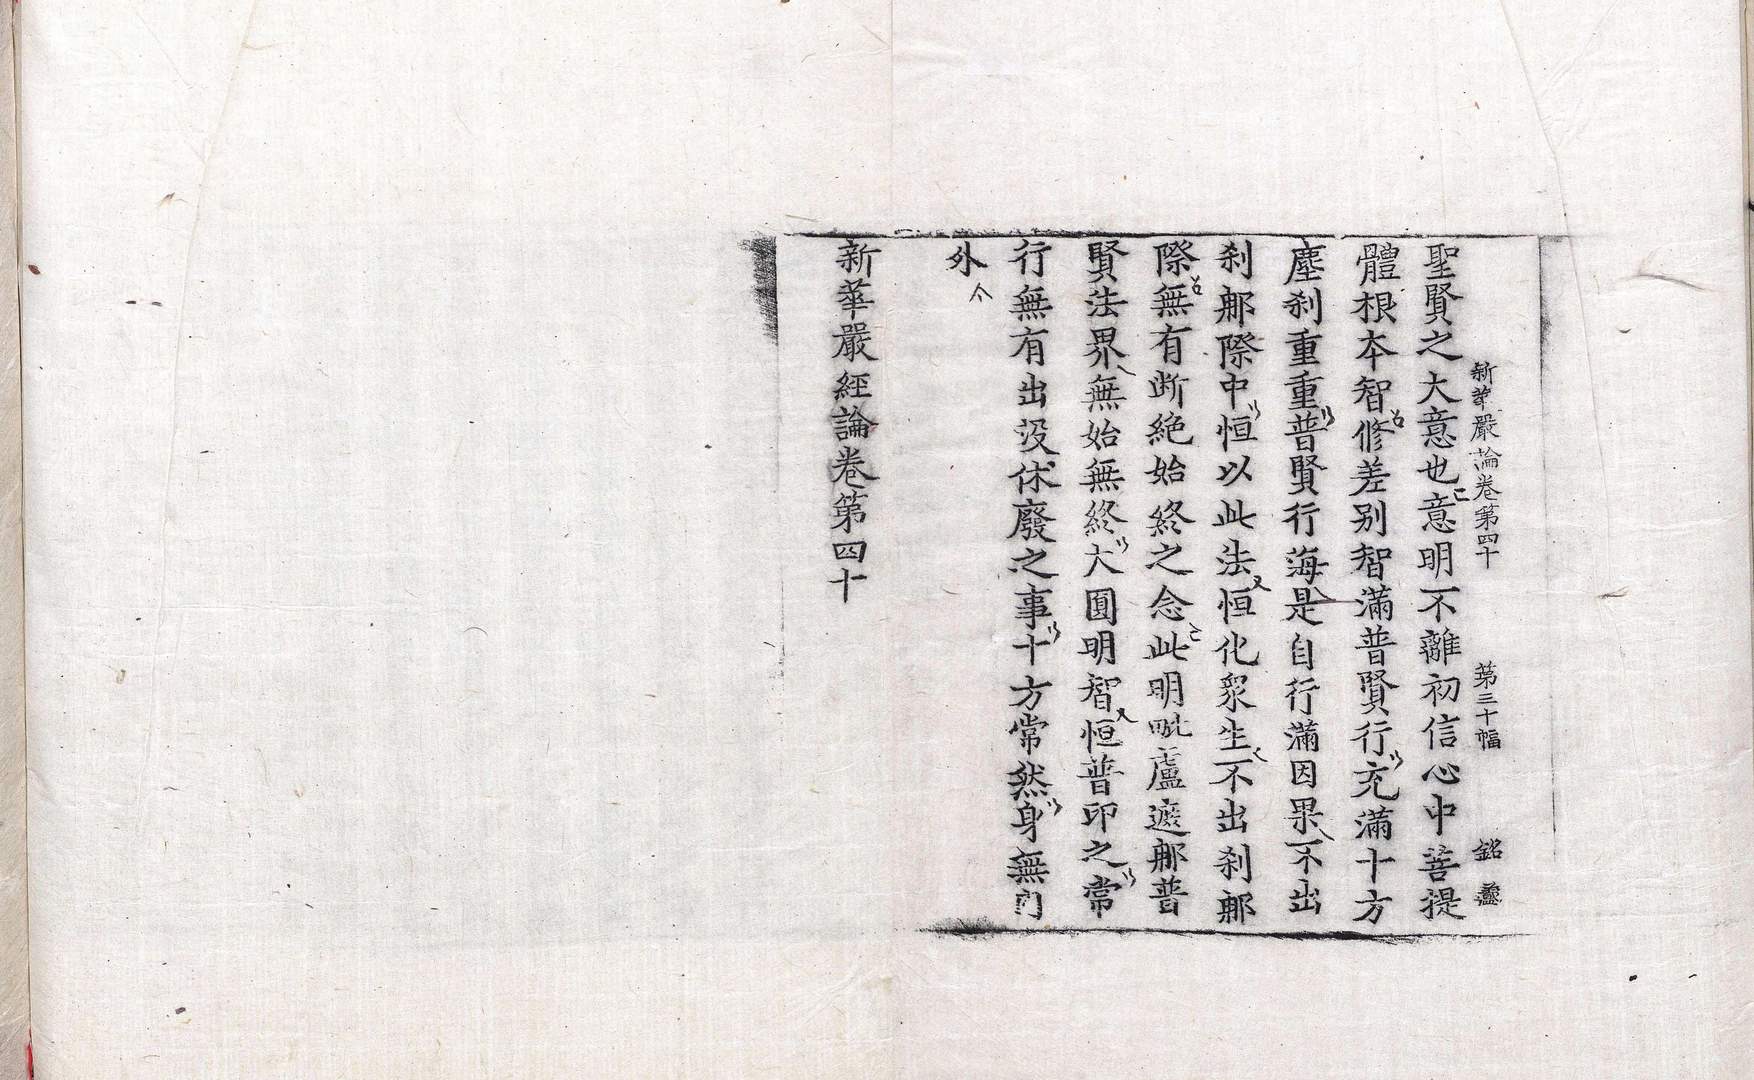 新華嚴論卷第四十 第三十幅 銘 蠡
聖賢之大意也意明不離初信心中菩提
體根本智修差别智滿普賢行充滿十方
塵刹重重普賢行海是自行滿因果不出
刹那際中恒以此法恒化衆生不出刹那
際無有断絶始終之念此明毗盧遮那普
賢法界無始無終大圓明智恒普印之常
行無有出没休廢之事十方常然身無內
外
新華嚴經論卷第四十